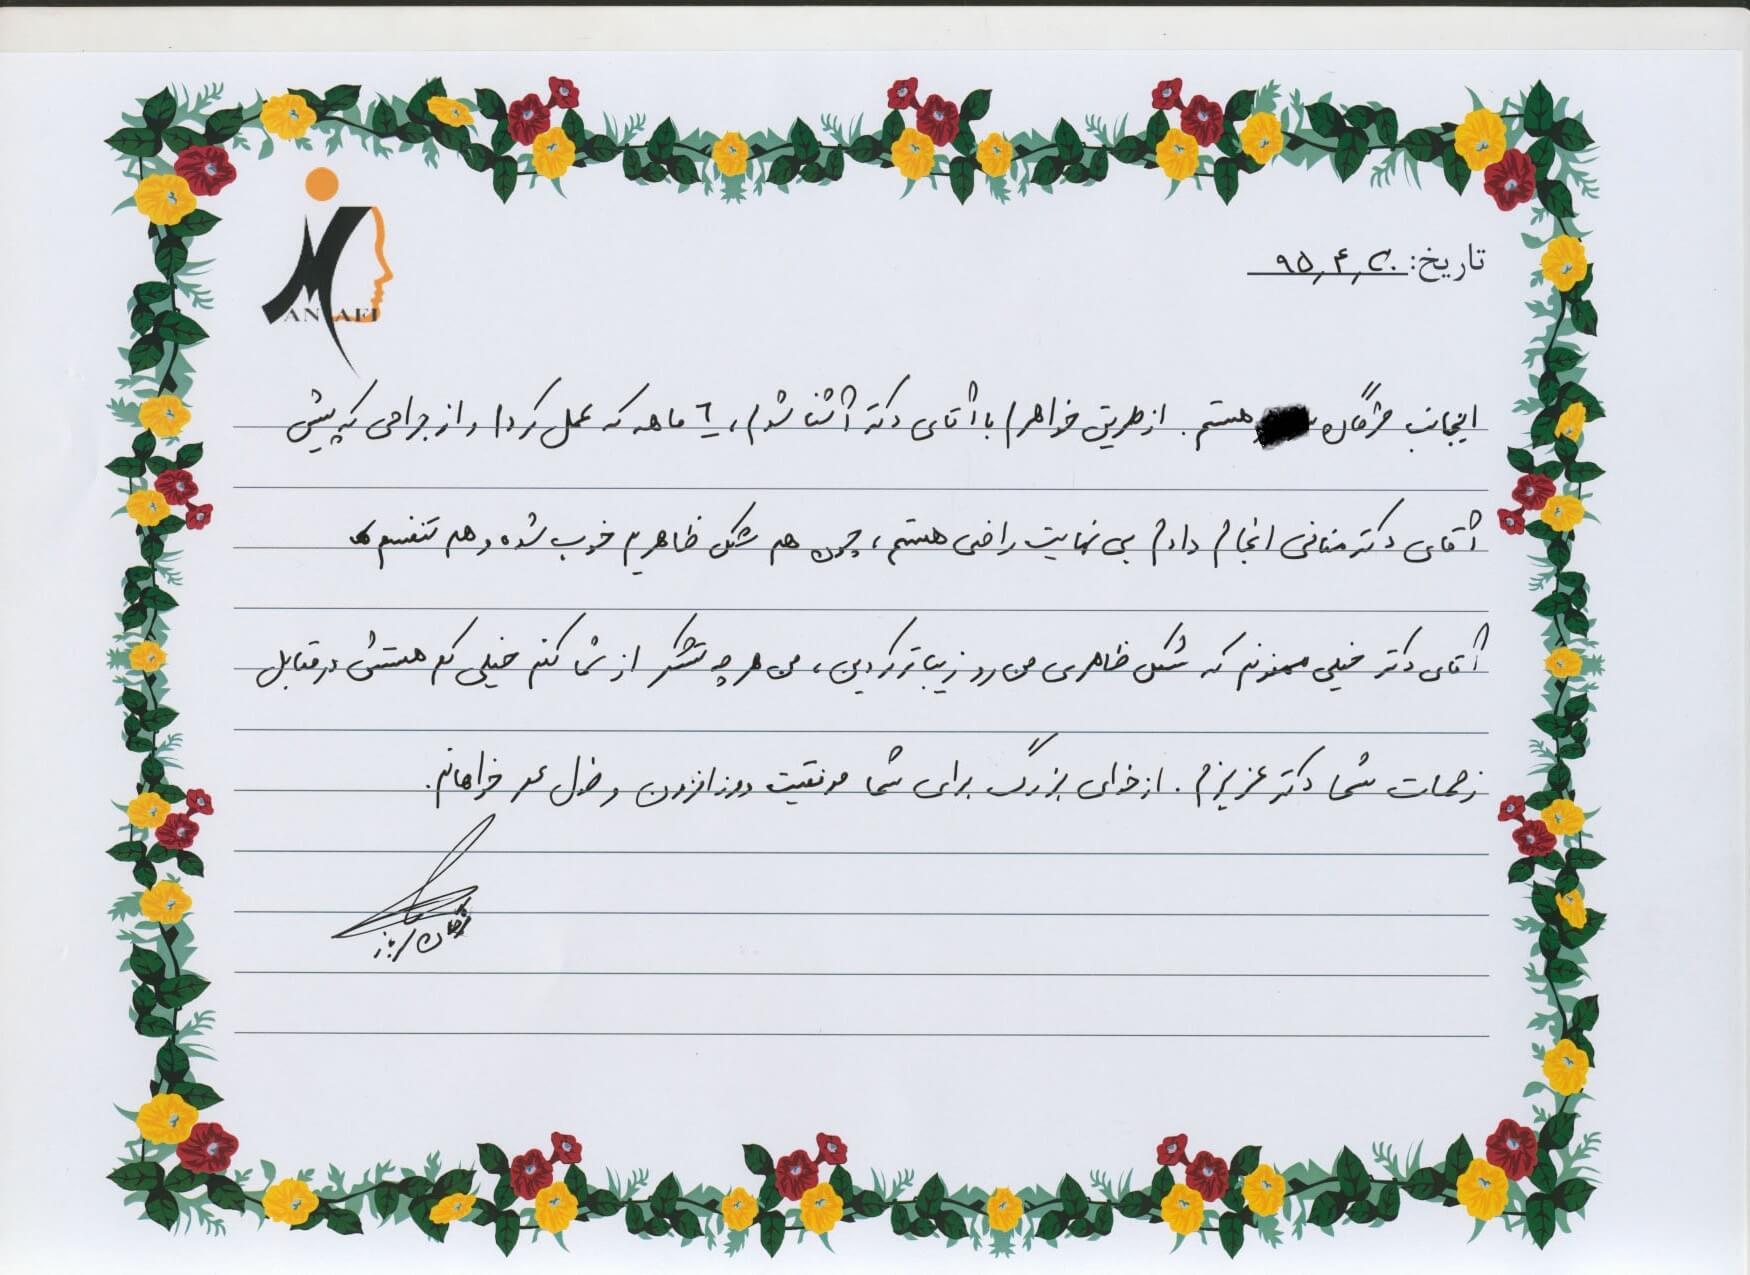 MANAFI
تاریخ: ۹۵٫۴٫۲۰
اینجانب مژگان هستم. از طریق خواهرم با آقای دکتر آشنا شدم، ٦ ماهه که عمل کردم و از جراحی که پیش
آقای دکتر منافی انجام دادم بی نهایت راضی هستم، چون هم شکل ظاهریم خوب شده و هم تنفسم
آقای دکتر خیلی ممنونم که شکل ظاهری من رو زیباتر کردین، من هر چه تشکر از شما کنم خیلی کم هستش در مقابل
زحمات شما دکتر عزیزم. از خدای بزرگ برای شما موفقیت روز افزون و طول عمر خواهانم.
مژگان